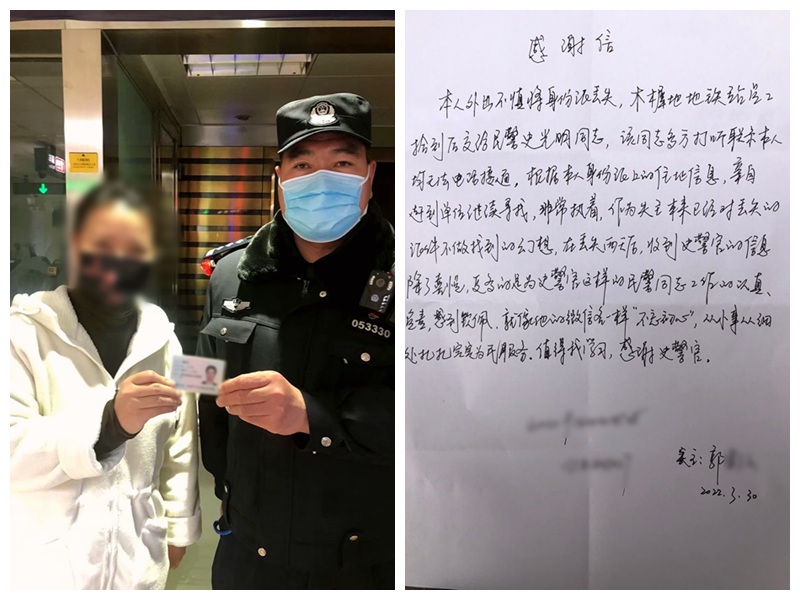 053330
感谢信
本人外出不慎将身份证丢失，木樨地地铁站员工
拾到后交给民警史光明同志，该同志多方打听联系本人
均无法电话接通，根据本人身份证上的住地信息，亲自
到单位继续寻找，非常执着，作为失主本来已经对丢失的
证件不做找到的幻想，在丢失两天后，收到史警官的信息
除了惊，更多的是为史警官这样的民警同志工作的认真、
负责，感到钦佩，就像他的微信名一样“不忘初心”，从小事从细
处扎扎实实为民服务。值得我学习，感谢史警官。
失主：郭
2022.3.30